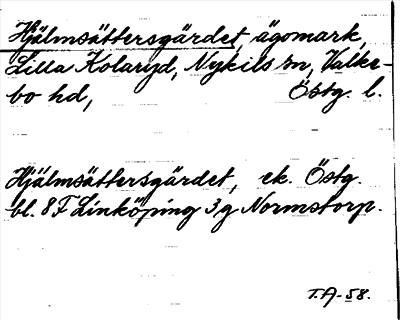 Hjälmsättersgärdet, ägomark,
Lilla Kolaryd, Nykils sn, Valke-
bo hd, Östg. l.
Hjälmsättersgärdet, ek. Östg.
bl. 8F Linköping 3g Normstorp.
T.A-58.